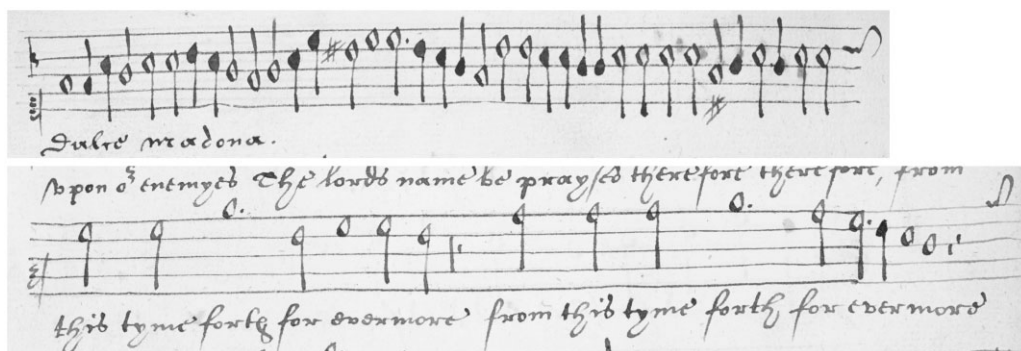 dulce madona.
vpon oʳ enemyes The lords name be prayſed therefore therefore, from
this tyme forth for evermore from this tyme forth for evermore